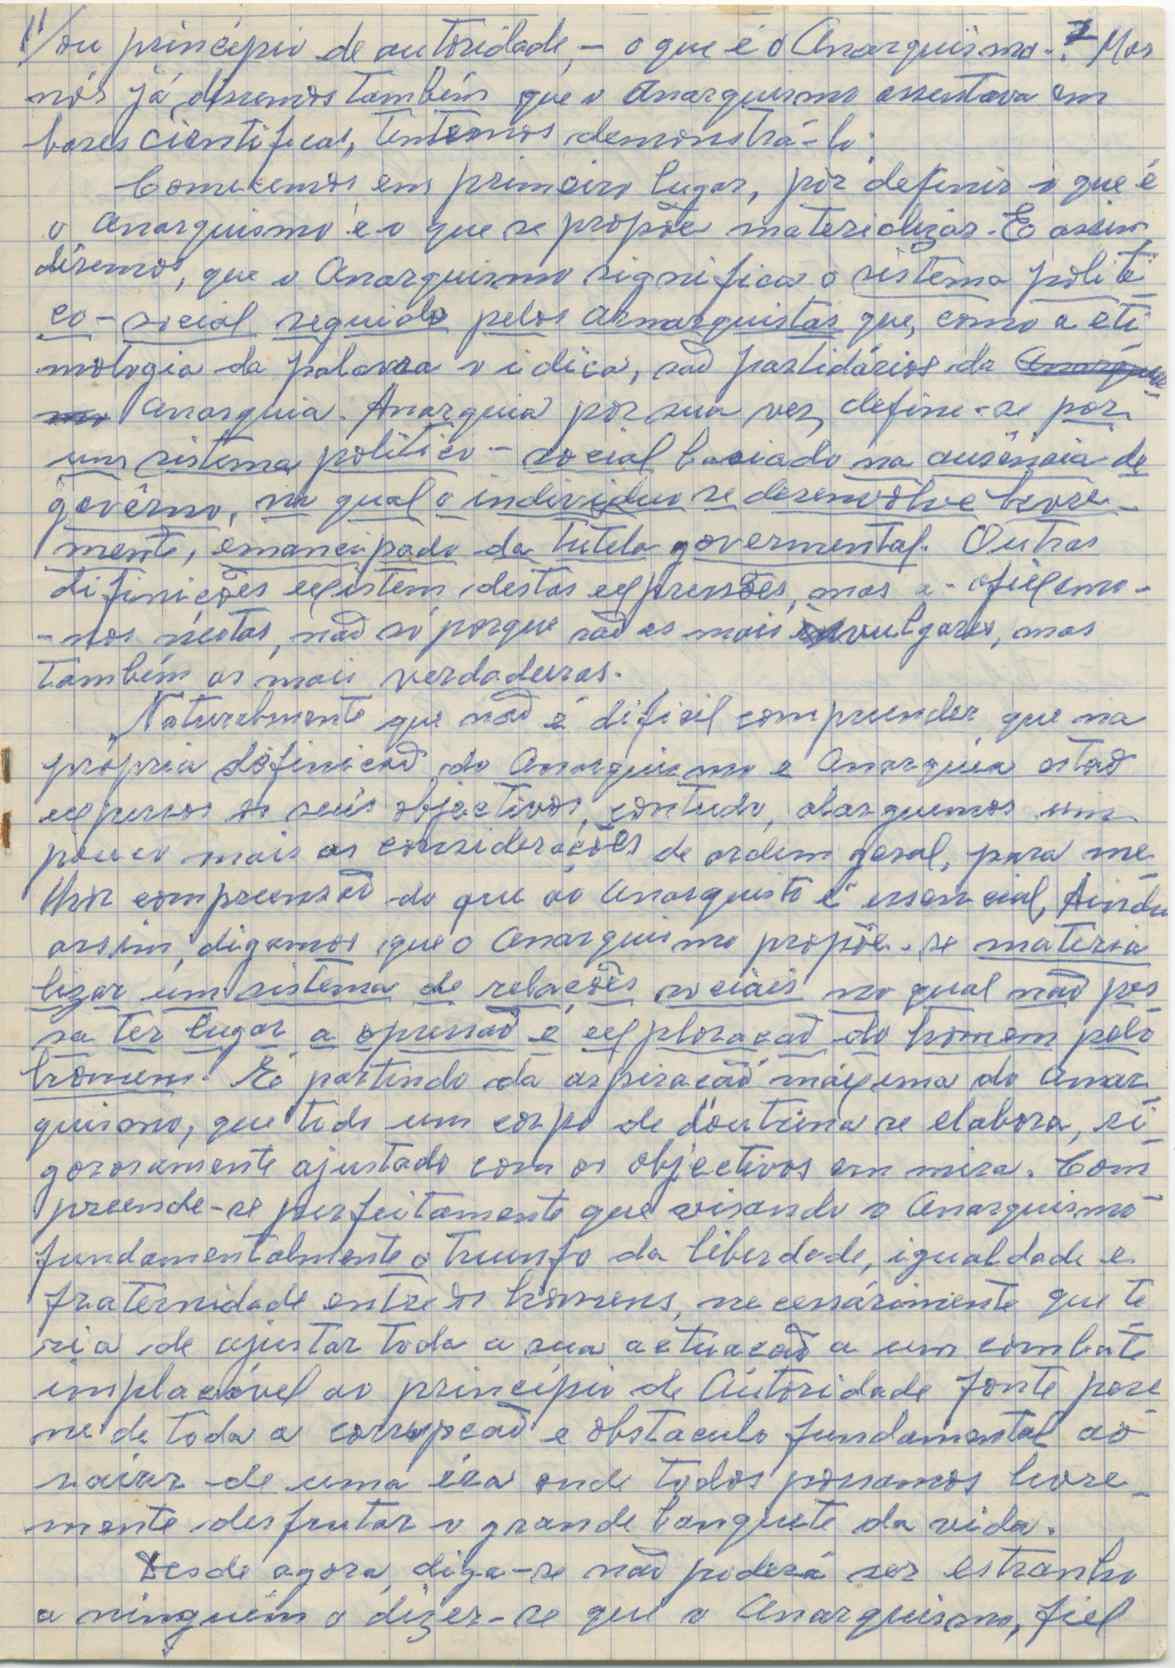 11/ou princípio de autoridade, - o que é o Anarquismo.? Mas
nós já dissemos também que o Anarquismo assentava em
bases cientificas, tentemos demonstrá-lo.
Comecemos em primeiro lugar, por definir o que é
o Anarquismo e o que se propõe materializar. E assim
diremos, que o Anarquismo significa o sistema politi
co-social seguido pelos anarquistas que, como a eti
mologia da palavra o idica, são partidários da
Anarquia. Anarquia por sua vez, define-se por
um sistema político-social baciado na ausência de
govêrno, no qual o individuo se desenvolve livre-
mente, emancipado da tutela governmental. Outras
difinições existem destas expressões, mas
-nos nestas, não só porque são as mais vulgares, mas
também as mais verdadeiras.
Naturalmente que não é dificil compreender que na
própria difinicão do Anarquismo e Anarquia estão
expressos os seus objectivos, contudo, alarguemos um
pouco mais as considerações de ordem geral, para me
lhor compreensão do que ao Anarquista é essencial, Ainda
assim, digamos que o Anarquismo propõe-se materia
lizar um sistema de relações sociais no qual não pos
sa ter lugar a opressão e exploracão do homem pelo
homem. E partindo da aspiração máxima do Anar
quismo, que todo um corpo de doutrina se elabora, ri
gorosamente ajustado com os objectivos em mira. Com
preende-se perfeitamente que visando o Anarquismo
fundamentalmente o triunfo da liberdade, igualdade e
fraternidade entre os homens, necessáriamente que te
ria de ajustar toda a sua actuacão a um combate
implacável ao princípio de Autoridade fonte pere
ne de toda a corrupcão e obstaculo fundamental ao
raiar de uma éra onde todos possamos livre-
mente desfrutar o grande banquete da vida.
Desde agora, diga-se não poderá ser estranho
a ninguém o dizer-se que o Anarquismo, fiel